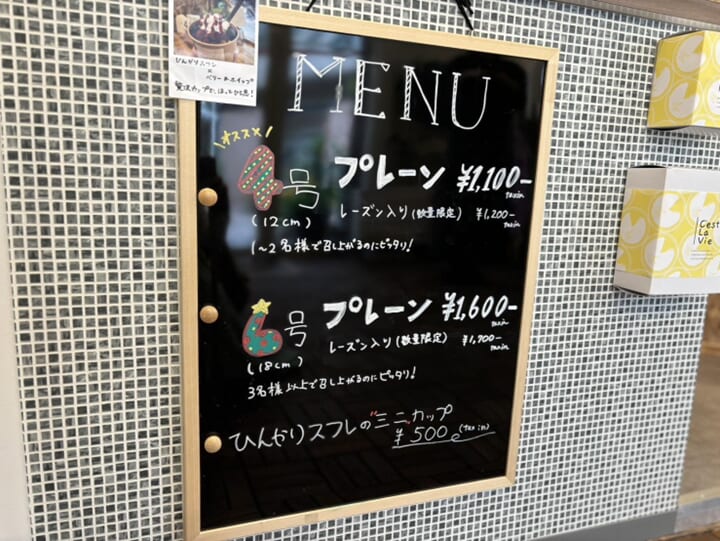 ひんやりスフレ
×
ベリー&ホイップ
贅沢カップで、ほっとひと息!
MENU
オススメ
4号 プレーン ¥1,100-
taxin
(12cm) レーズン入り(数量限定) ¥1,200-
taxin
1〜2名様で召し上がるのにピッタリ!
6号 プレーン ¥1,600-
taxin
(18cm) レーズン入り(数量限定) ¥1,700-
taxin
3名様以上で召し上がるのにピッタリ!
ひんやりスフレの"ミニ"カップ
¥500 (tax in)
C'est
La
Vie